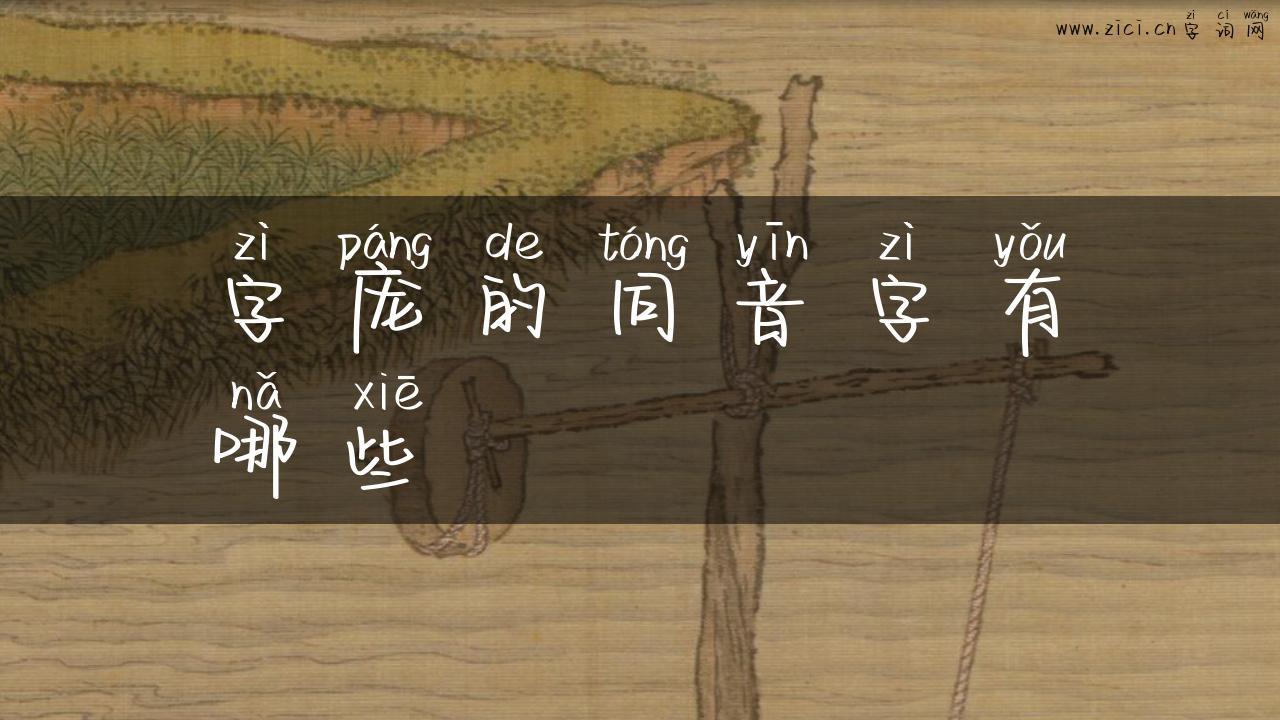 zì cí wǎng
www.zici.cn 字词网
zì páng de tóng yīn zì yǒu
字庞的同音字有
nǎ xiē
哪些